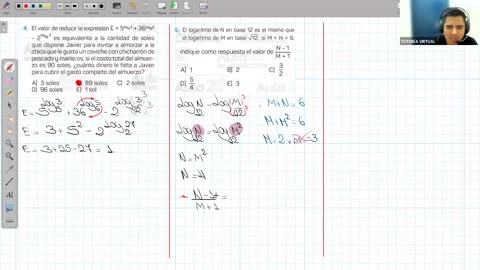 4. El valor de reducir la expresión E = 5^log₅3 + 36^log₆5
- 2^log₂3³ es equivalente a la cantidad de soles
que dispone Javier para invitar a almorzar a la
chica que le gusta un ceviche con chicharrón de
pescado y mariscos, si el costo total del almuer-
zo es 90 soles, ¿cuánto dinero le falta a Javier
para cubrir el gasto completo del almuerzo?
A) 3 soles B) 89 soles C) 2 soles
D) 96 soles E) 1 sol
E = 3 + 5² - 2^log₂27
E = 3+25-27 = 1
5. El logaritmo de N en base 12 es el mismo que
el logaritmo de M en base √12, si M + N = 6,
indique como respuesta el valor de N - 1
M + 1
A) 1 B) 2 C) 3/2
D) 5/4 E) 3
N = M²
N = 4
N-1
M+1 =
M+N = 6
M+M² = 6
M = 2
TUTORÍA VIRTUAL